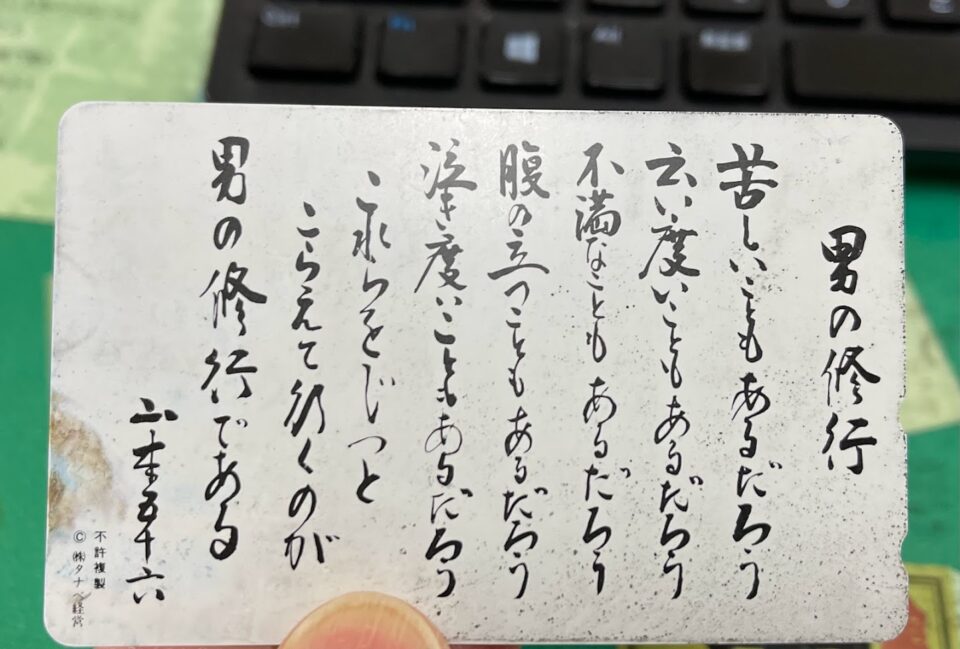 男の修行
苦しいこともあるだろう
云い度いこともあるだろう
不満なこともあるだろう
腹の立つこともあるだろう
泣き度いこともあるだろう
これらをじっと
こらえて行くのが
男の修行である
山本五十六
不許複製
© ㈱タナベ経営
Ctrl
Fn
Alt